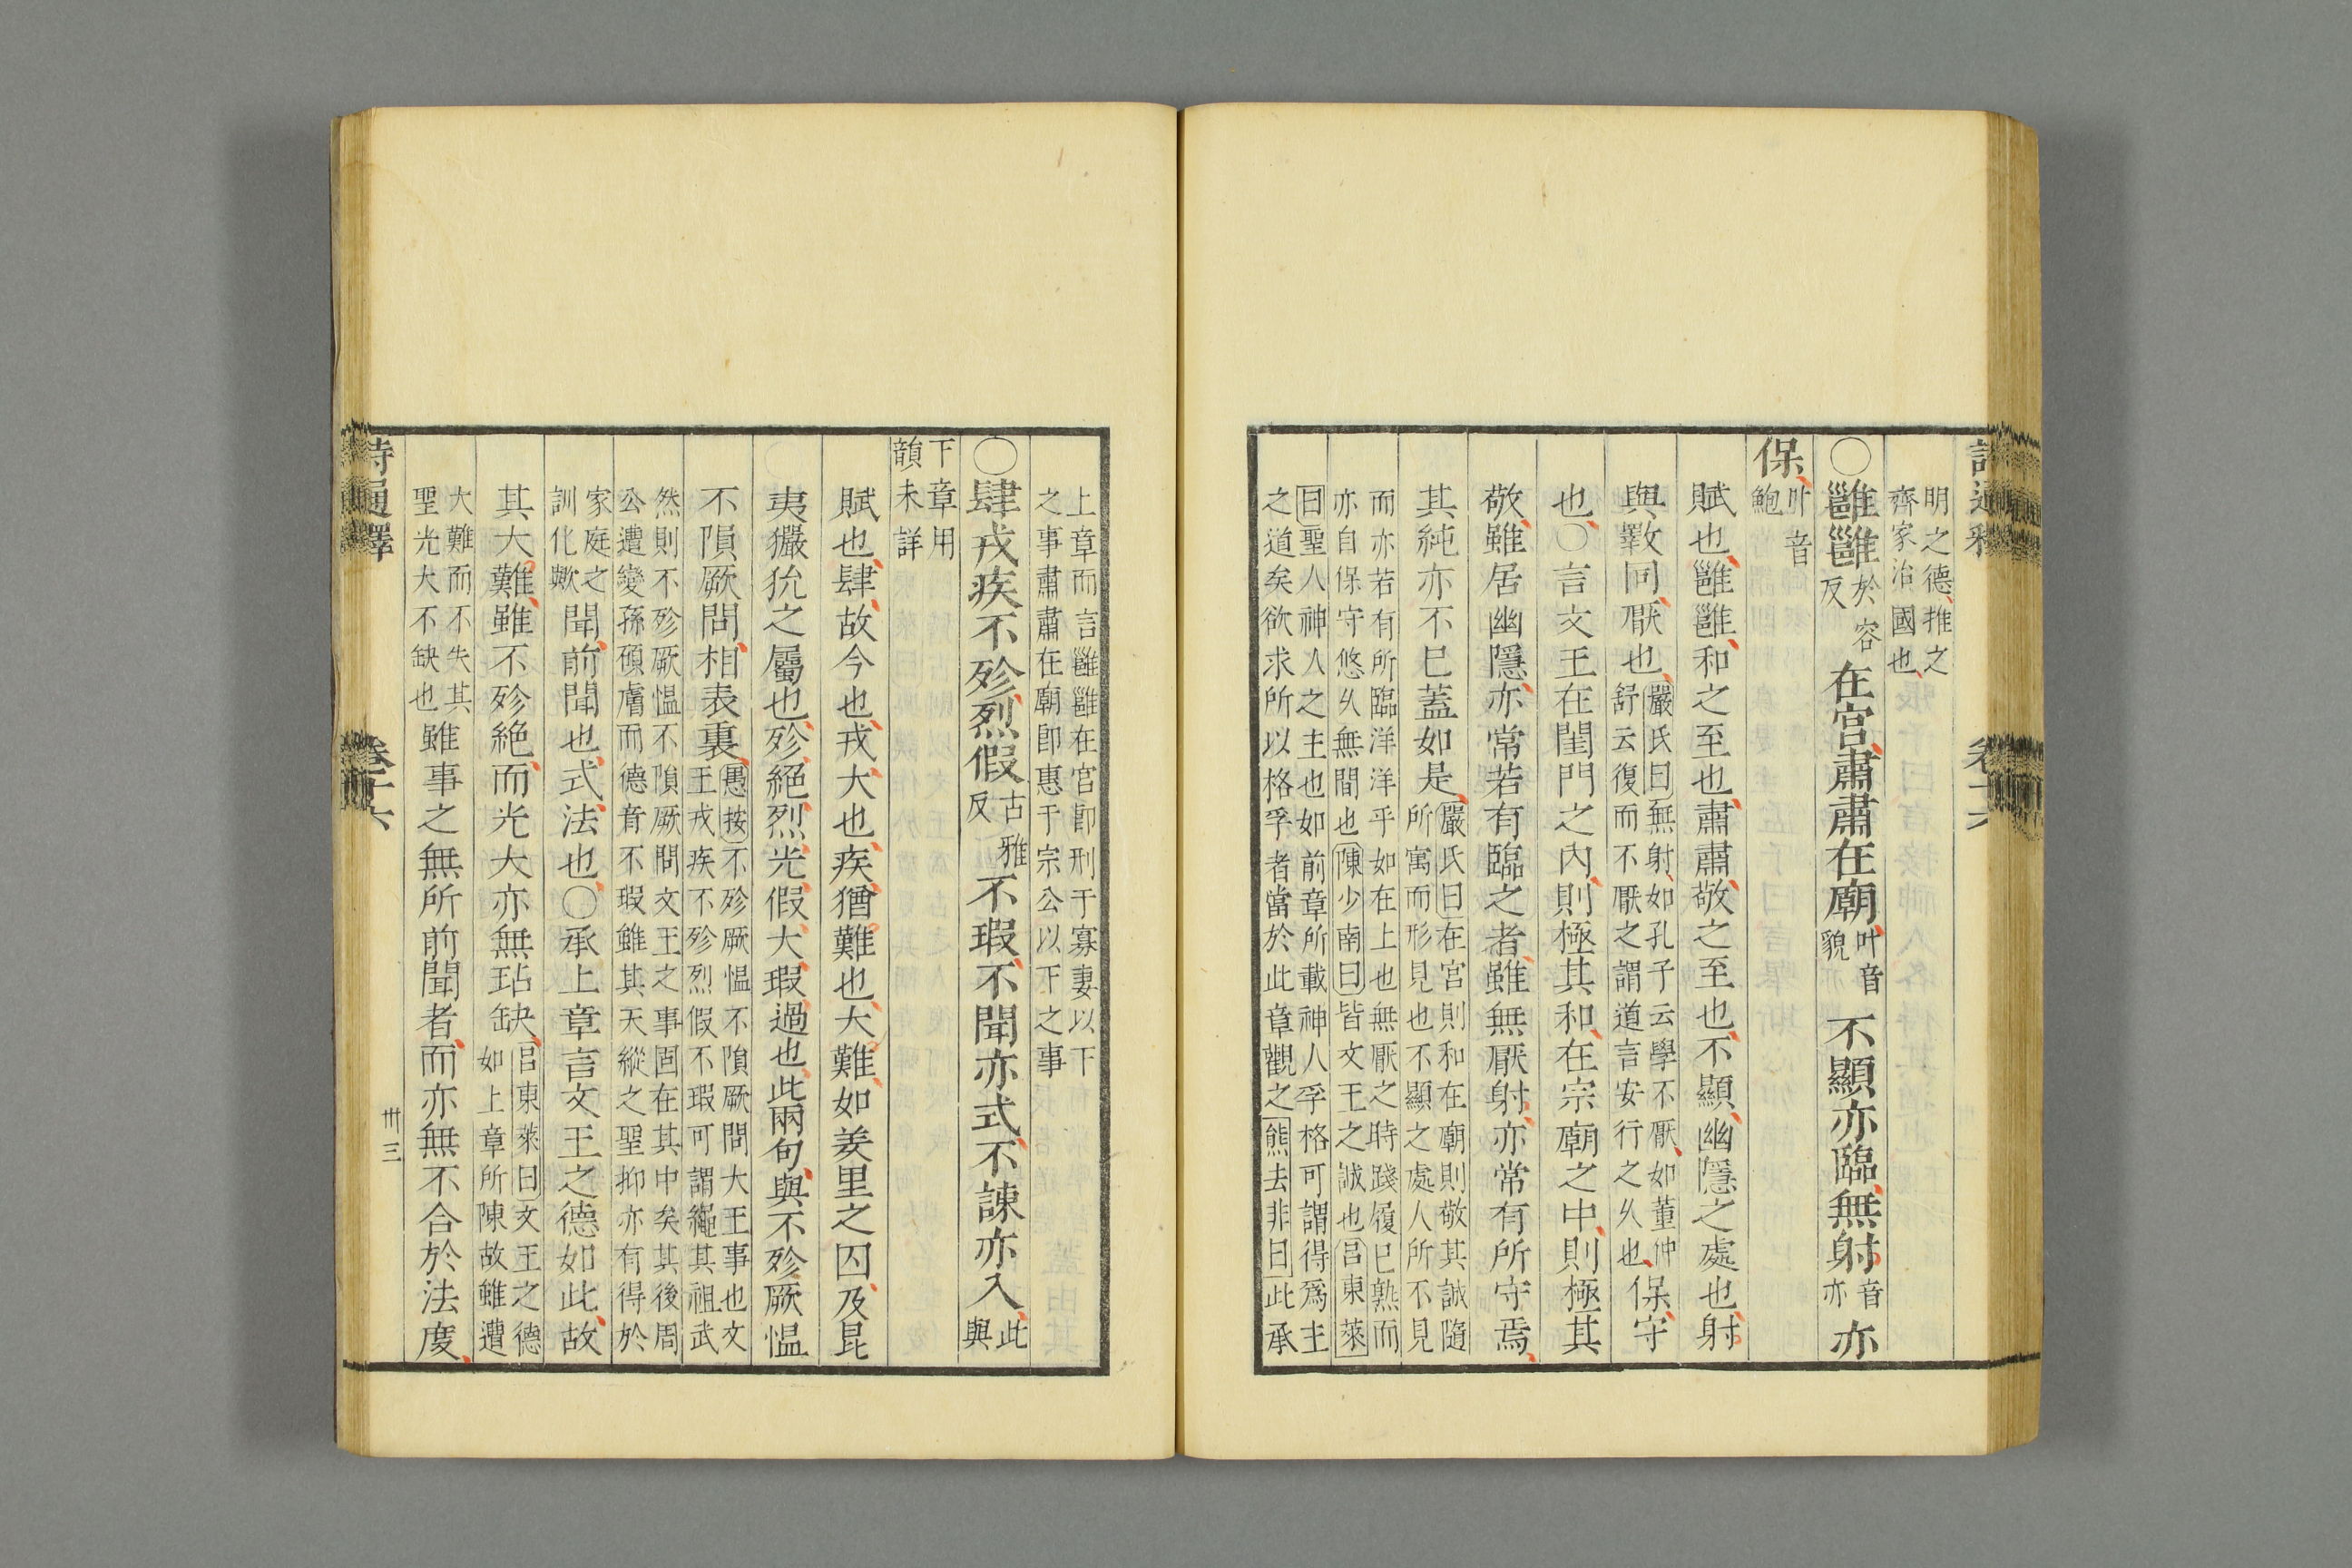 明之德推之
齊家治國也
〇雝雝於容反在宮肅肅在廟叶音貌不顯亦臨無射音亦亦
保叶音鮑
賦也雝雝和之至也肅肅敬之至也不顯幽隱之處也射
與斁同厭也嚴氏曰無射如孔子云學不厭如董仲舒云復而不厭之謂道言安行之久也保守
也〇言文王在閨門之內則極其和在宗廟之中則極其
敬雖居幽隱亦常若有臨之者雖無厭射亦常有所守焉
其純亦不已蓋如是嚴氏曰在宮則和在廟則敬其誠隨所寓而形見也不顯之處人所不見
而亦若有所臨洋洋乎如在上也無厭之時踐履已熟而
亦自保守悠久無間也陳少南曰皆文王之誠也呂東萊
曰聖人神人之主也如前章所載神人孚格可謂得爲主
之道矣欲求所以格孚者當於此章觀之熊去非曰此承
上章而言雝雝在宮卽刑于寡妻以下
之事肅肅在廟卽惠于宗公以下之事
〇肆戎疾不殄烈假古雅反不瑕不聞亦式不諫亦入此與
下章用
韻未詳
賦也肆故今也戎大也疾猶難也大難如羑里之囚及昆
夷玁狁之屬也殄絕烈光假大瑕過也此兩句與不殄厥愠
不隕厥問相表裏愚按不殄厥愠不隕厥問大王事也文王戎疾不殄烈假不瑕可謂繩其祖武
然則不殄厥愠不隕厥問文王之事固在其中矣其後周
公遭變孫碩膚而德音不瑕雖其天縱之聖抑亦有得於
家庭之訓化歟聞前聞也式法也〇承上章言文王之德如此故
其大難雖不殄絕而光大亦無玷缺呂東萊曰文王之德如上章所陳故雖遭
大難而不失其聖光大不缺也雖事之無所前聞者而亦無不合於法度
詩通釋
卷十六
卅三